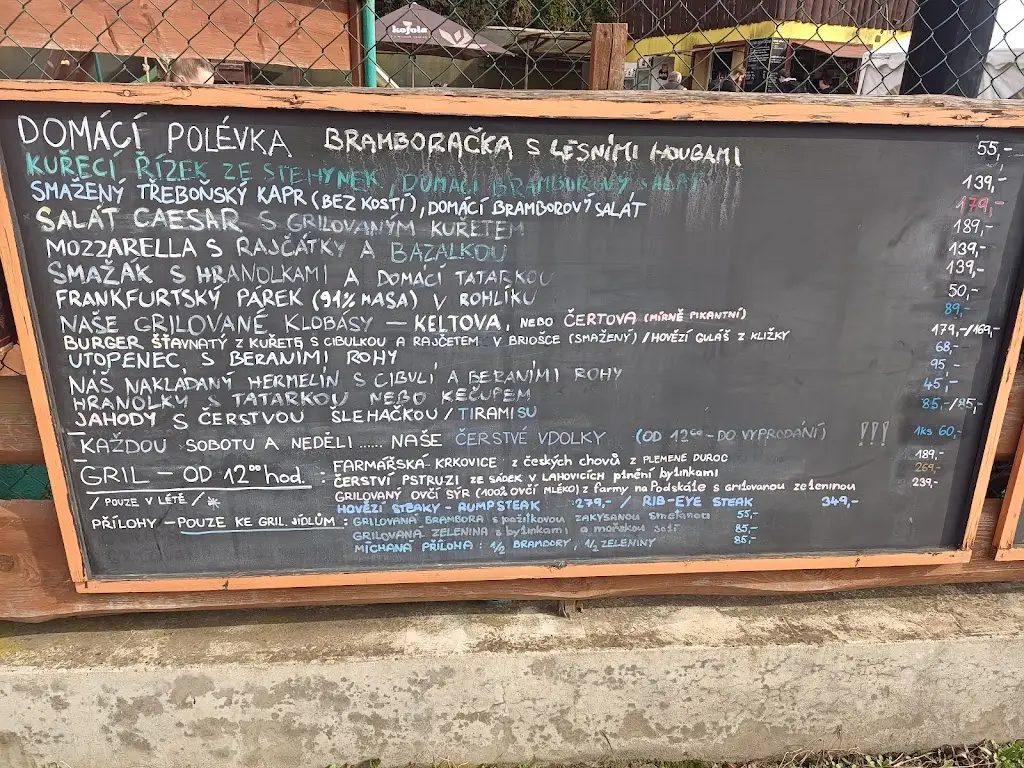 kofola
DOMÁCÍ POLÉVKA BRAMBORAČKA S LESNÍMI HOUBAMI 55,-
KUŘECÍ ŘÍZEK ZE STEHÝNEK, DOMÁCÍ BRAMBOROVÝ SALÁT 139,-
SMAŽENÝ TŘEBOŇSKÝ KAPR (BEZ KOSTÍ), DOMÁCÍ BRAMBOROVÝ SALÁT 179,-
SALÁT CAESAR S GRILOVANÝM KUŘETEM 189,-
MOZZARELLA S RAJČÁTKY A BAZALKOU 139,-
SMAŽÁK S HRANOLKAMI A DOMÁCÍ TATARKOU 139,-
FRANKFURTSKÝ PÁREK (91% MASA) V ROHLÍKU 50,-
NAŠE GRILOVANÉ KLOBÁSY – KELTOVA, NEBO ČERTOVA (MÍRNĚ PIKANTNÍ) 89,-
BURGER ŠŤAVNATÝ Z KUŘETE S CIBULKOU A RAJČETEM V BRIOŠCE (SMAŽENÝ) / HOVĚZÍ GULÁŠ Z KLIŽKY 179,-/169,-
UTOPENEC, S BERANÍMI ROHY 68,-
NÁŠ NAKLÁDANÝ HERMELÍN S CIBULÍ A BERANÍMI ROHY 95,-
HRANOLKY S TATARKOU NEBO KEČUPEM 45,-
JAHODY S ČERSTVOU ŠLEHAČKOU / TIRAMISU 85,-/85,-
KAŽDOU SOBOTU A NEDĚLI ...... NAŠE ČERSTVÉ VDOLKY (OD 12⁰⁰ - DO VYPRODÁNÍ) !!! 1ks 60,-
GRIL – OD 12⁰⁰ hod. : FARMÁŘSKÁ KRKOVICE z českých chovů z PLEMENE DUROC 189,-
ČERSTVÍ PSTRUZI ZE SÁDEK V LAHOVICÍCH plnění bylinkami 269,-
/ POUZE V LÉTĚ / * GRILOVANÝ OVČÍ SÝR (100% OVČÍ MLÉKO) z farmy na Podskále s grilovanou zeleninou 239,-
HOVĚZÍ STEAKY - RUMPSTEAK 279,- / RIB-EYE STEAK 349,-
PŘÍLOHY – POUZE KE GRIL JÍDLŮM : GRILOVANÁ BRAMBORA s pažitkovou ZAKYSANOU smetanou 55,-
GRILOVANÁ ZELENINA s bylinkami a mořskou solí 85,-
MÍCHANÁ PŘÍLOHA : 1/2 BRAMBORY, 1/2 ZELENINY 85,-